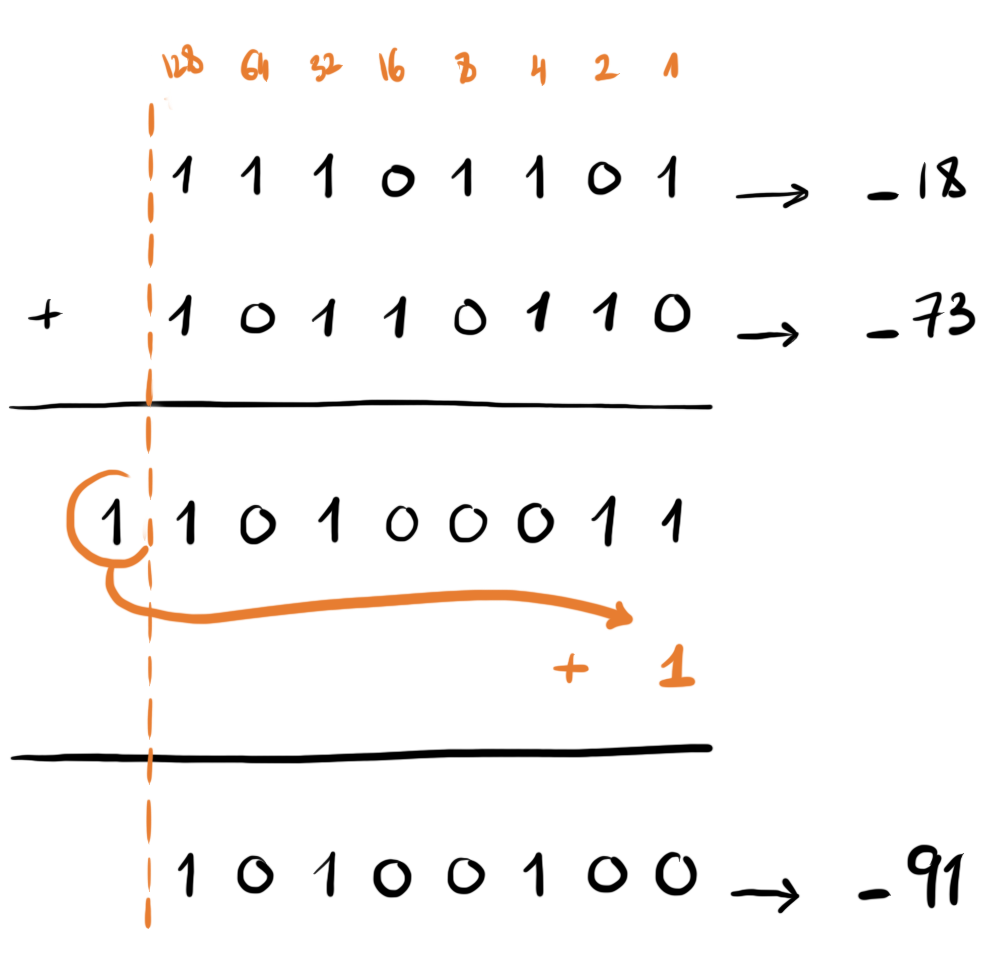 128 64 32 16 8 4 2 1
1 1 1 0 1 1 0 1 → -18
+ 1 0 1 1 0 1 1 0 → -73
1 1 0 1 0 0 0 1 1
+ 1
1 0 1 0 0 1 0 0 → -91